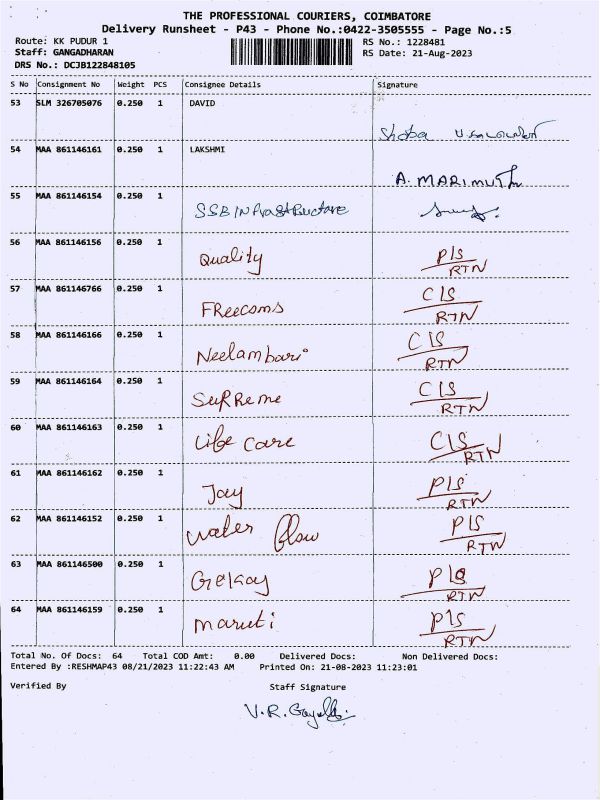 THE PROFESSIONAL COURIERS, COIMBATORE
Delivery Runsheet - P43 - Phone No.:0422-3505555 - Page No.:5
Route: KK PUDUR 1 RS No.: 1228481
Staff: GANGADHARAN RS Date: 21-Aug-2023
DRS No.: DCJB122848105
S No Consignment No Weight PCS Consignee Details Signature
53 SLM 326705076 0.250 1 DAVID
Shoba
54 MAA 861146161 0.250 1 LAKSHMI
A. MARIMUTH
55 MAA 861146154 0.250 1
SSB INFrastructure
56 MAA 861146156 0.250 1
Quality P/S
RTN
57 MAA 861146766 0.250 1 C/S
FReecoms RTN
58 MAA 861146166 0.250 1 C/S
Neelambari RTN
59 MAA 861146164 0.250 1 C/S
SupReme RTN
60 MAA 861146163 0.250 1
Life care C/S
RTN
61 MAA 861146162 0.250 1 P/S
Jay RTN
62 MAA 861146152 0.250 1 P/S
water flow RTN
63 MAA 861146500 0.250 1 P/S
RTN
64 MAA 861146159 0.250 1
maruti P/S
RTN
Total No. Of Docs: 64 Total COD Amt: 0.00 Delivered Docs: Non Delivered Docs:
Entered By :RESHMAP43 08/21/2023 11:22:43 AM Printed On: 21-08-2023 11:23:01
Verified By Staff Signature
V.R.